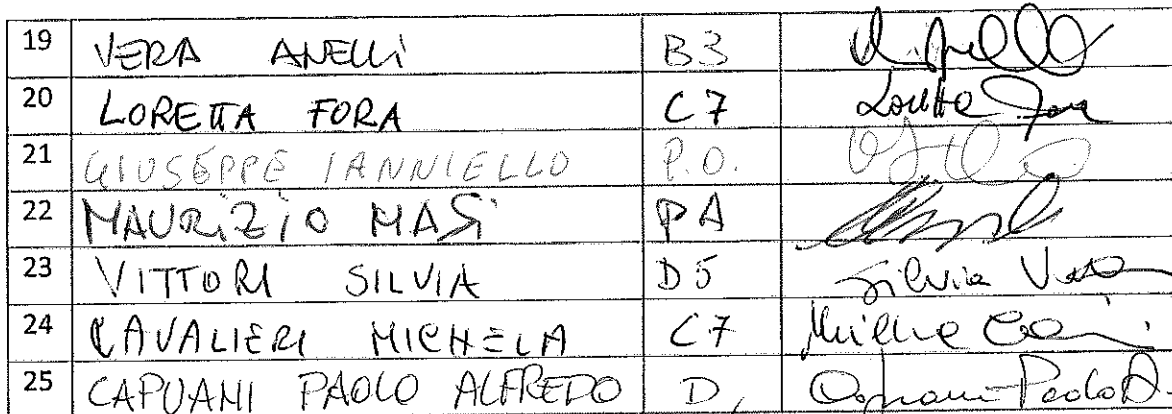 19 VERA ANELLI B3
20 LORETTA FORA C7 Loretta Fora
21 GIUSEPPE IANNIELLO P.O.
22 MAURIZIO MASI PA
23 VITTORI SILVIA D5 Silvia
24 CAVALIERI MICHELA C7
25 CAPUANI PAOLO ALFREDO D, Capuani Paolo A.